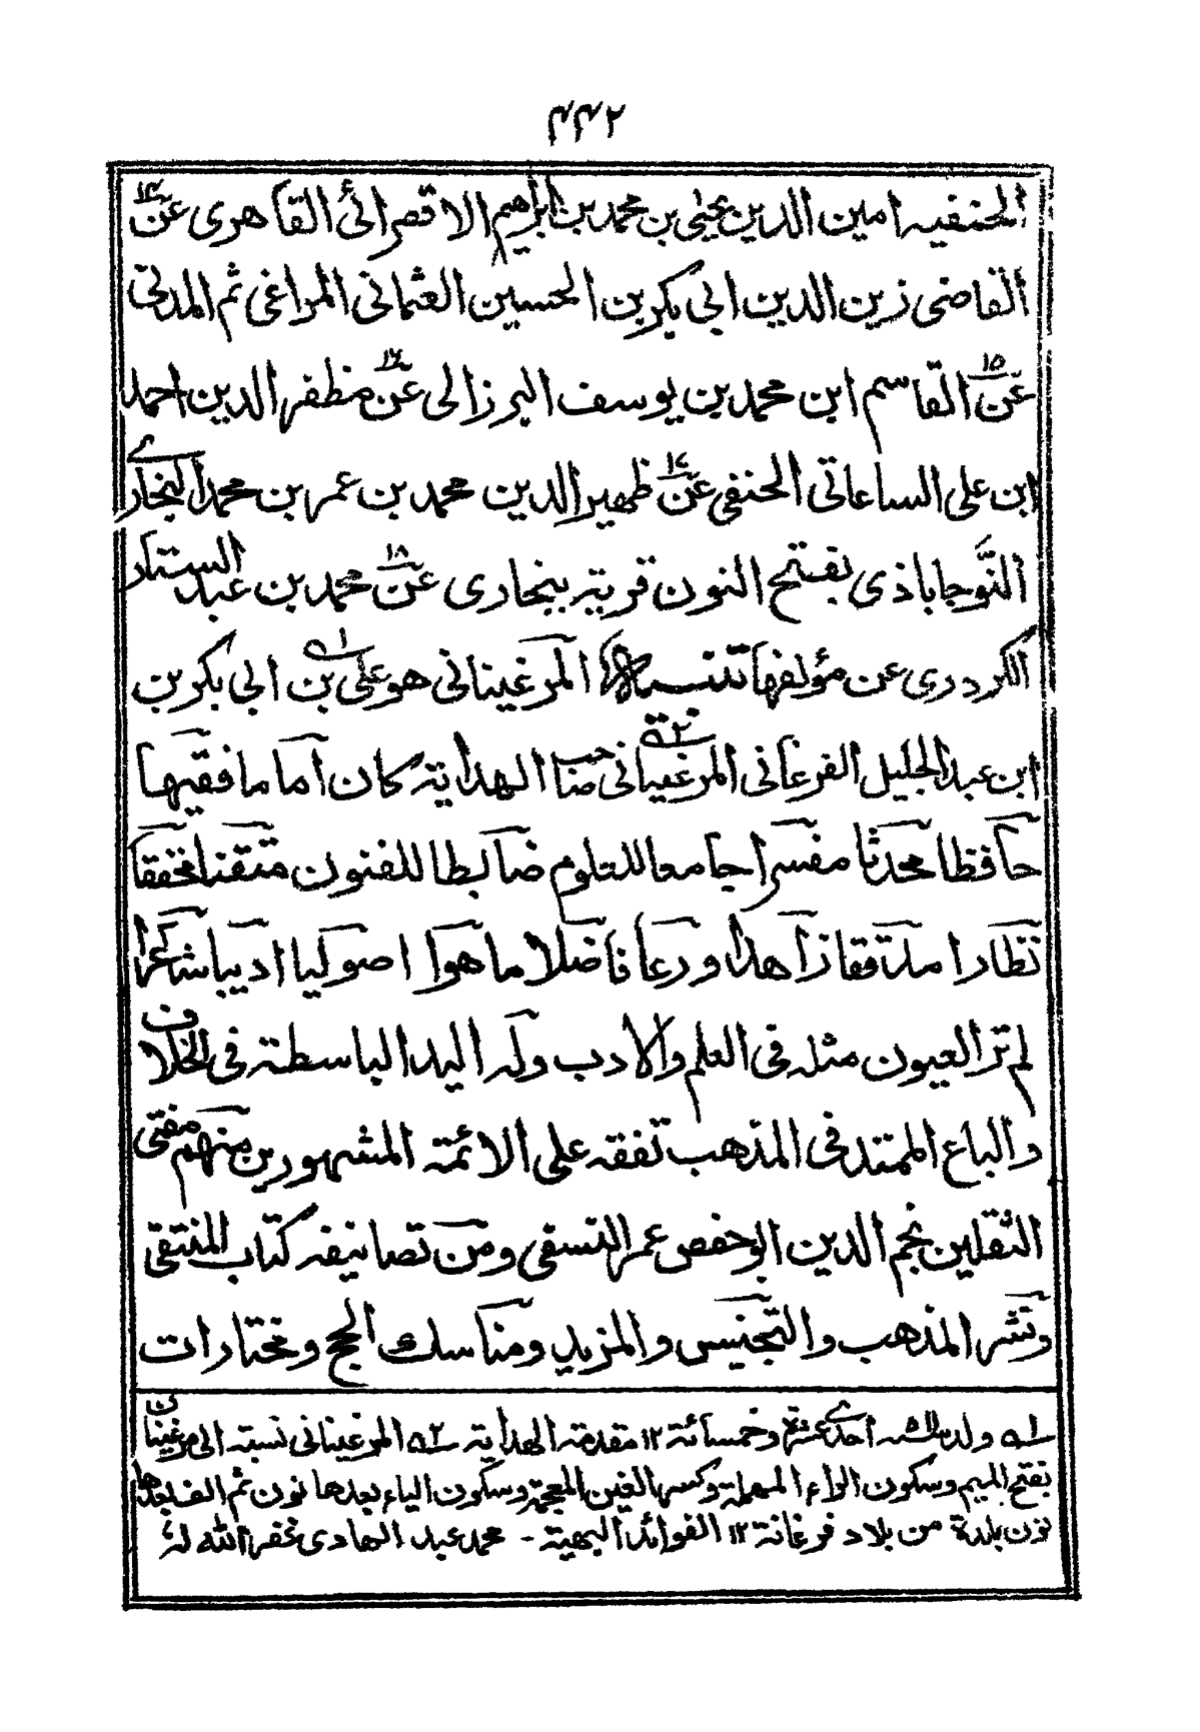 ۴۴۲
الحنفیه امین الدین یحیی بن محمد بن ابراهیم الاقصرائی القاهری عن۱۴
القاضی زین الدین ابی بکر بن الحسین العثمانی المراغی ثم المدنی
عن۱۵ القاسم ابن محمد بن یوسف البرزالی عن۱۶ مظفر الدین احمد
ابن علی الساعاتی الحنفی عن۱۷ ظهیر الدین محمد بن عمر بن محمد البخاری
النَّوجاباذی بفتح النون قریة ببخاری عن۱۸ محمد بن عبد الستار
الکردری عن مؤلفها تنبیه المرغینانی هو علی۱ بن ابی بکر بن
ابن عبد الجلیل الفرغانی المرغینانی۲ صاحب الهدایة کان اماما فقیها
حافظا محدثا مفسرا جامعا للعلوم ضابطا للفنون متقنا محققا
نظارا مدققا زاهدا ورعا فاضلا ماهرا اصولیا ادیبا شاعرا
لم تر العیون مثله فی العلم والادب وله الید الباسطة فی الخلاف
والباع الممتد فی المذهب تفقه علی الائمة المشهورین منهم مفتی
الثقلین نجم الدین ابو حفص عمر النسفی ومن تصانیفه کتاب المنتقی
ونشر المذهب والتجنیس والمزید ومناسک الحج ومختارات
۱ ولد سنه ۵۱۱ احدی عشرة وخمسائة ۱۲ مقدمة الهدایة ۲ المرغینانی نسبته الی مرغینان
بفتح المیم وسکون الراء المهملة وکسر الغین المعجمة وسکون الیاء بعدها نون ثم الف بعدها
نون بلدة من بلاد فرغانة ۱۲ الفوائد البهیة - محمد عبد الهادی غفر الله له